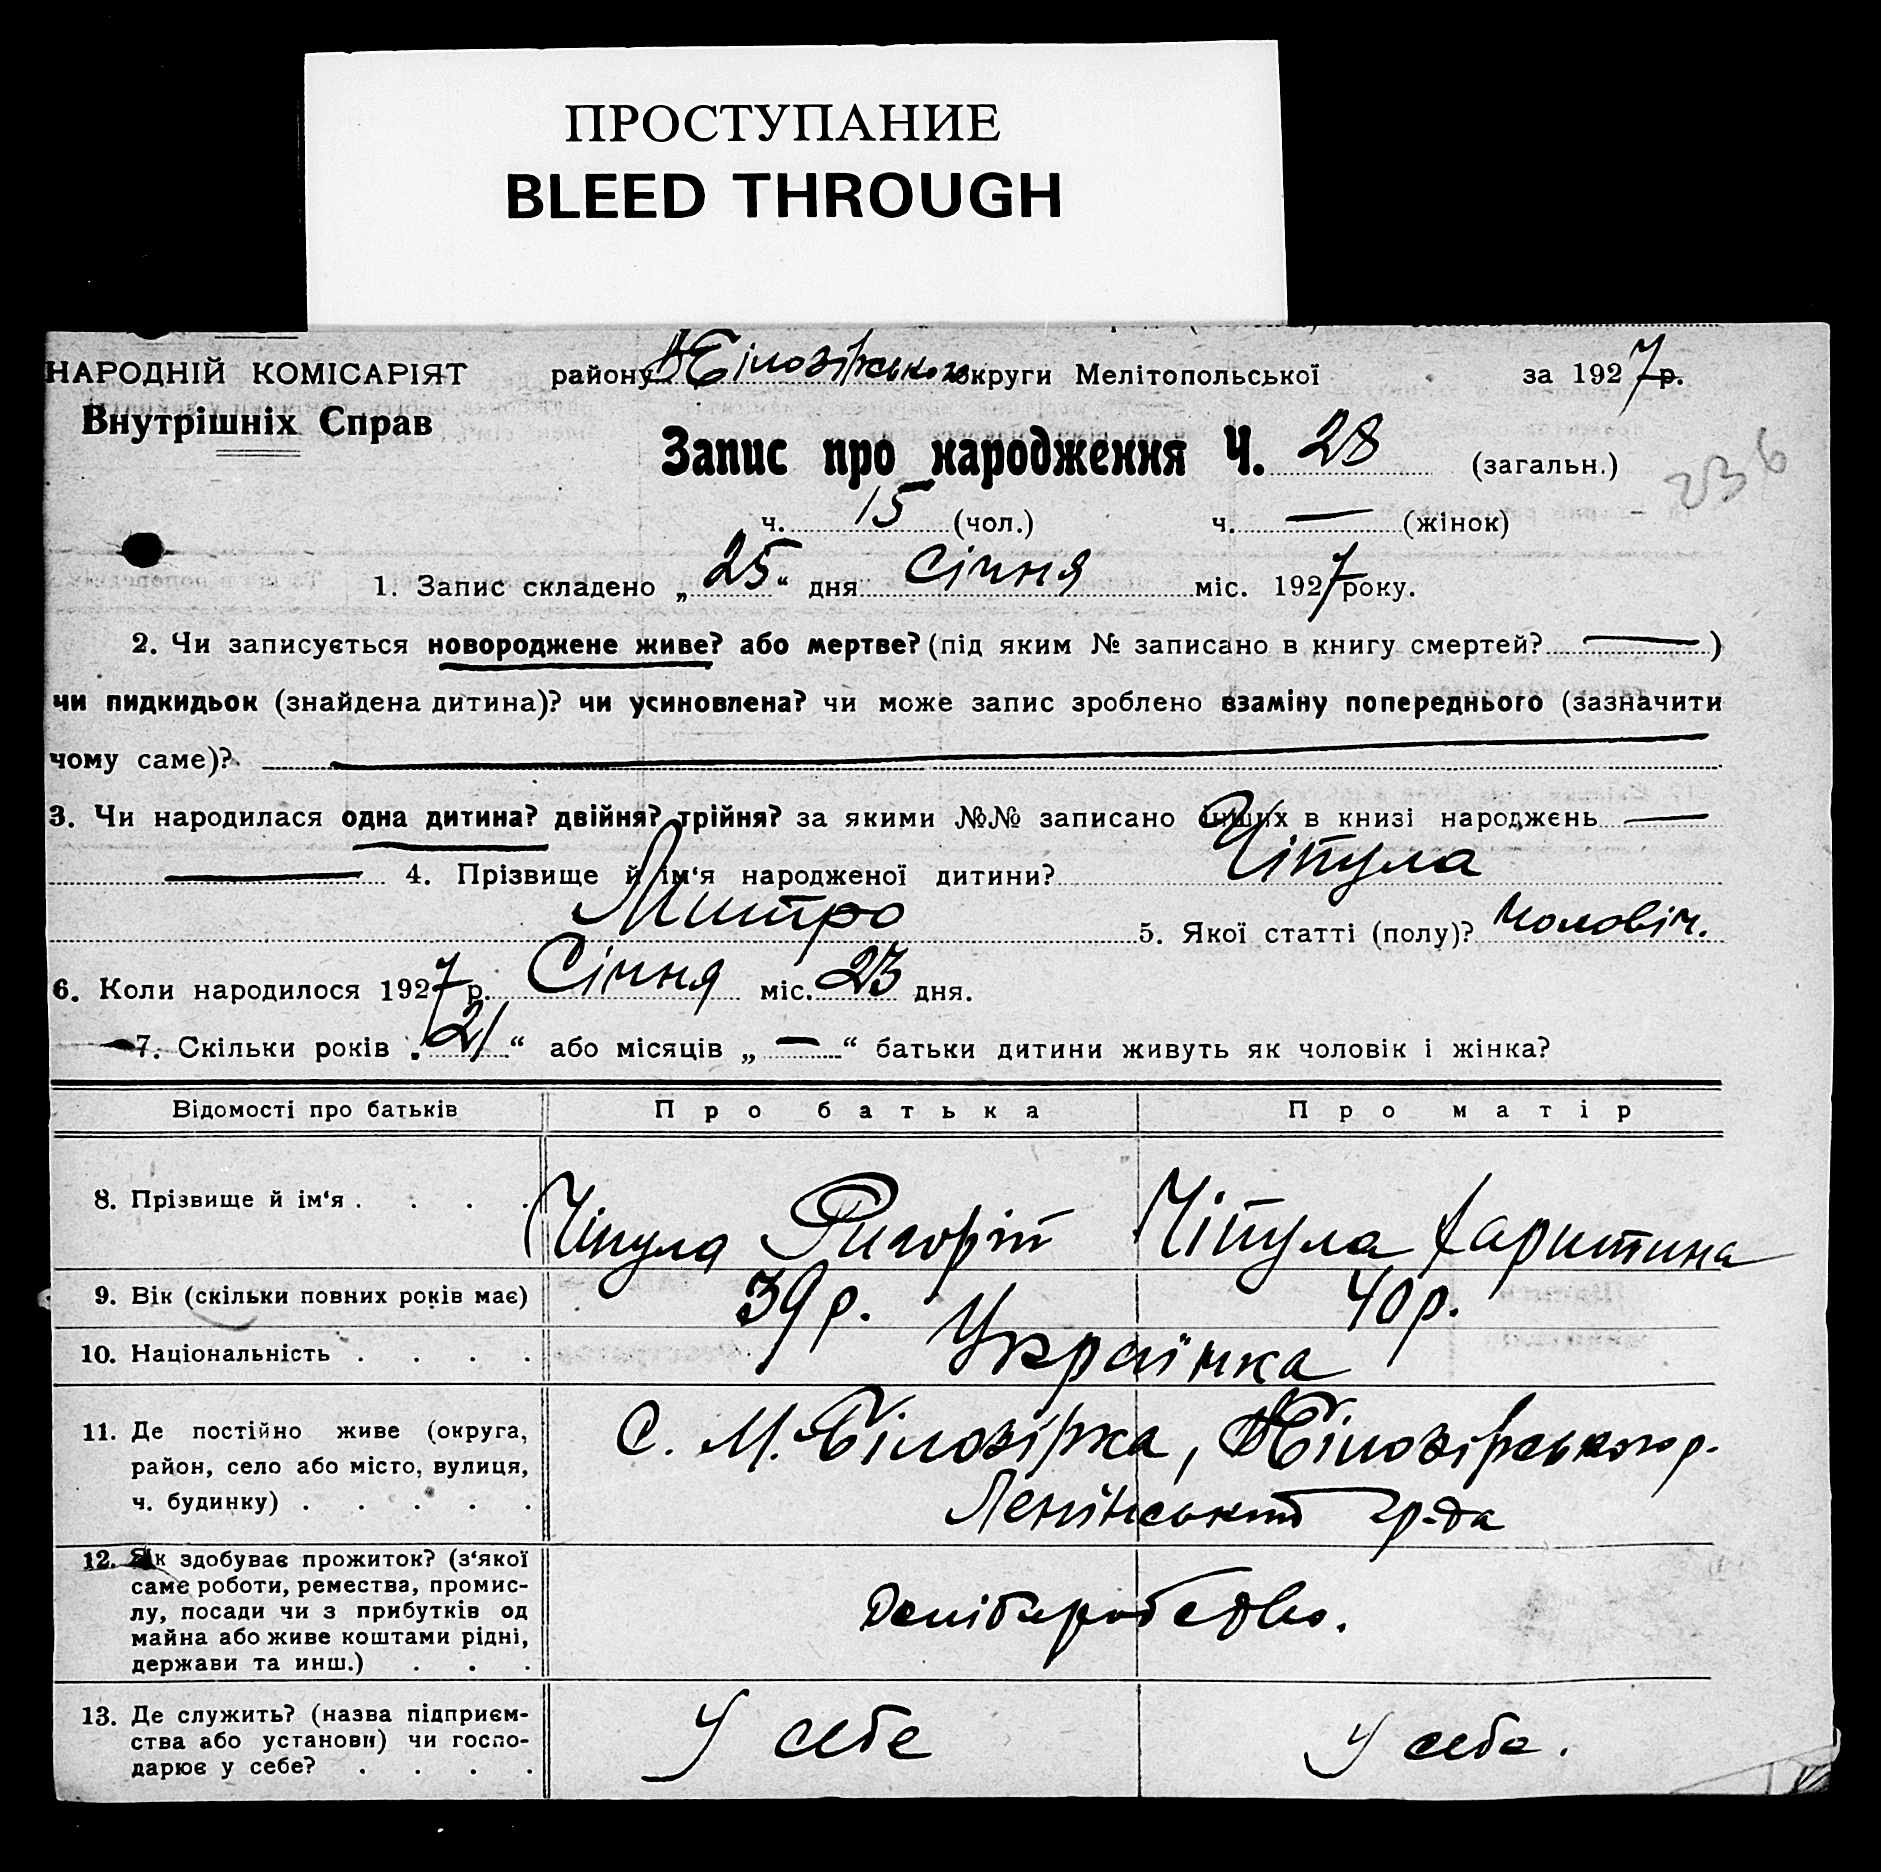 ПРОСТУПАНИЕ
BLEED THROUGH
НАРОДНІЙ КОМІСАРІЯТ району округи Мелітопольської за 1927 р.
Внутрішніх Справ
Запис про народження Ч. 28 (загальн.) 236
ч. 15 (чол.) ч. — (жінок)
1. Запис складено „25“ дня Січня міс. 1927 року.
2. Чи записується новороджене живе? або мертве? (під яким № записано в книгу смертей? — )
чи пидкидьок (знайдена дитина)? чи усиновлена? чи може запис зроблено взаміну попереднього (зазначити
чому саме)? —
3. Чи народилася одна дитина? двійня? трійня? за якими №№ записано інших в книзі народжень —
— 4. Прізвище й ім‘я народженої дитини? Чіпула
Митро 5. Якої статті (полу)? Чоловіч.
6. Коли народилося 1927 р. Січня міс. 23 дня.
7. Скільки років „21“ або місяців „—“ батьки дитини живуть як чоловік і жінка?
Відомості про батьків Про батька Про матір
8. Прізвище й ім‘я . . . . Чіпула Григорій Чіпула Харитина
9. Вік (скільки повних років має) 39 р. 40 р.
10. Національність . . . . Українка
11. Де постійно живе (округа,
район, село або місто, вулиця,
ч. будинку) . . . . .
С. М. Білозірка, Білозірського р.
12. Як здобуває прожиток? (з‘якої
саме роботи, ремества, промис-
лу, посади чи з прибутків од
майна або живе коштами рідні,
держави та инш.) . . .
13. Де служить? (назва підприєм-
ства або установи) чи госпо-
дарює у себе? . . . .
У себе У себе.